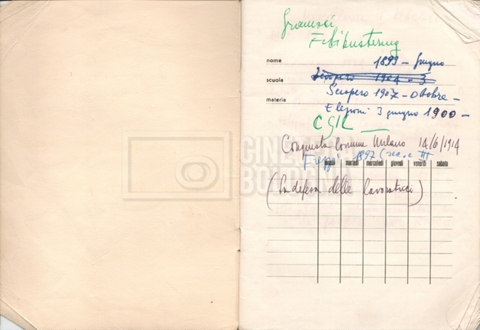 Gramsci,
Filibustering
nome 1899 - Giugno
scuola Sciopero 1904 - 3
Sciopero 1907 - Ottobre -
materia Elezioni 3 giugno 1900 -
CGIL
Conquista comune Milano 14/6/1914
1897
lunedì martedì mercoledì giovedì venerdì sabato
(In difesa delle lavoratrici)
CINETECA
BOLOGNA